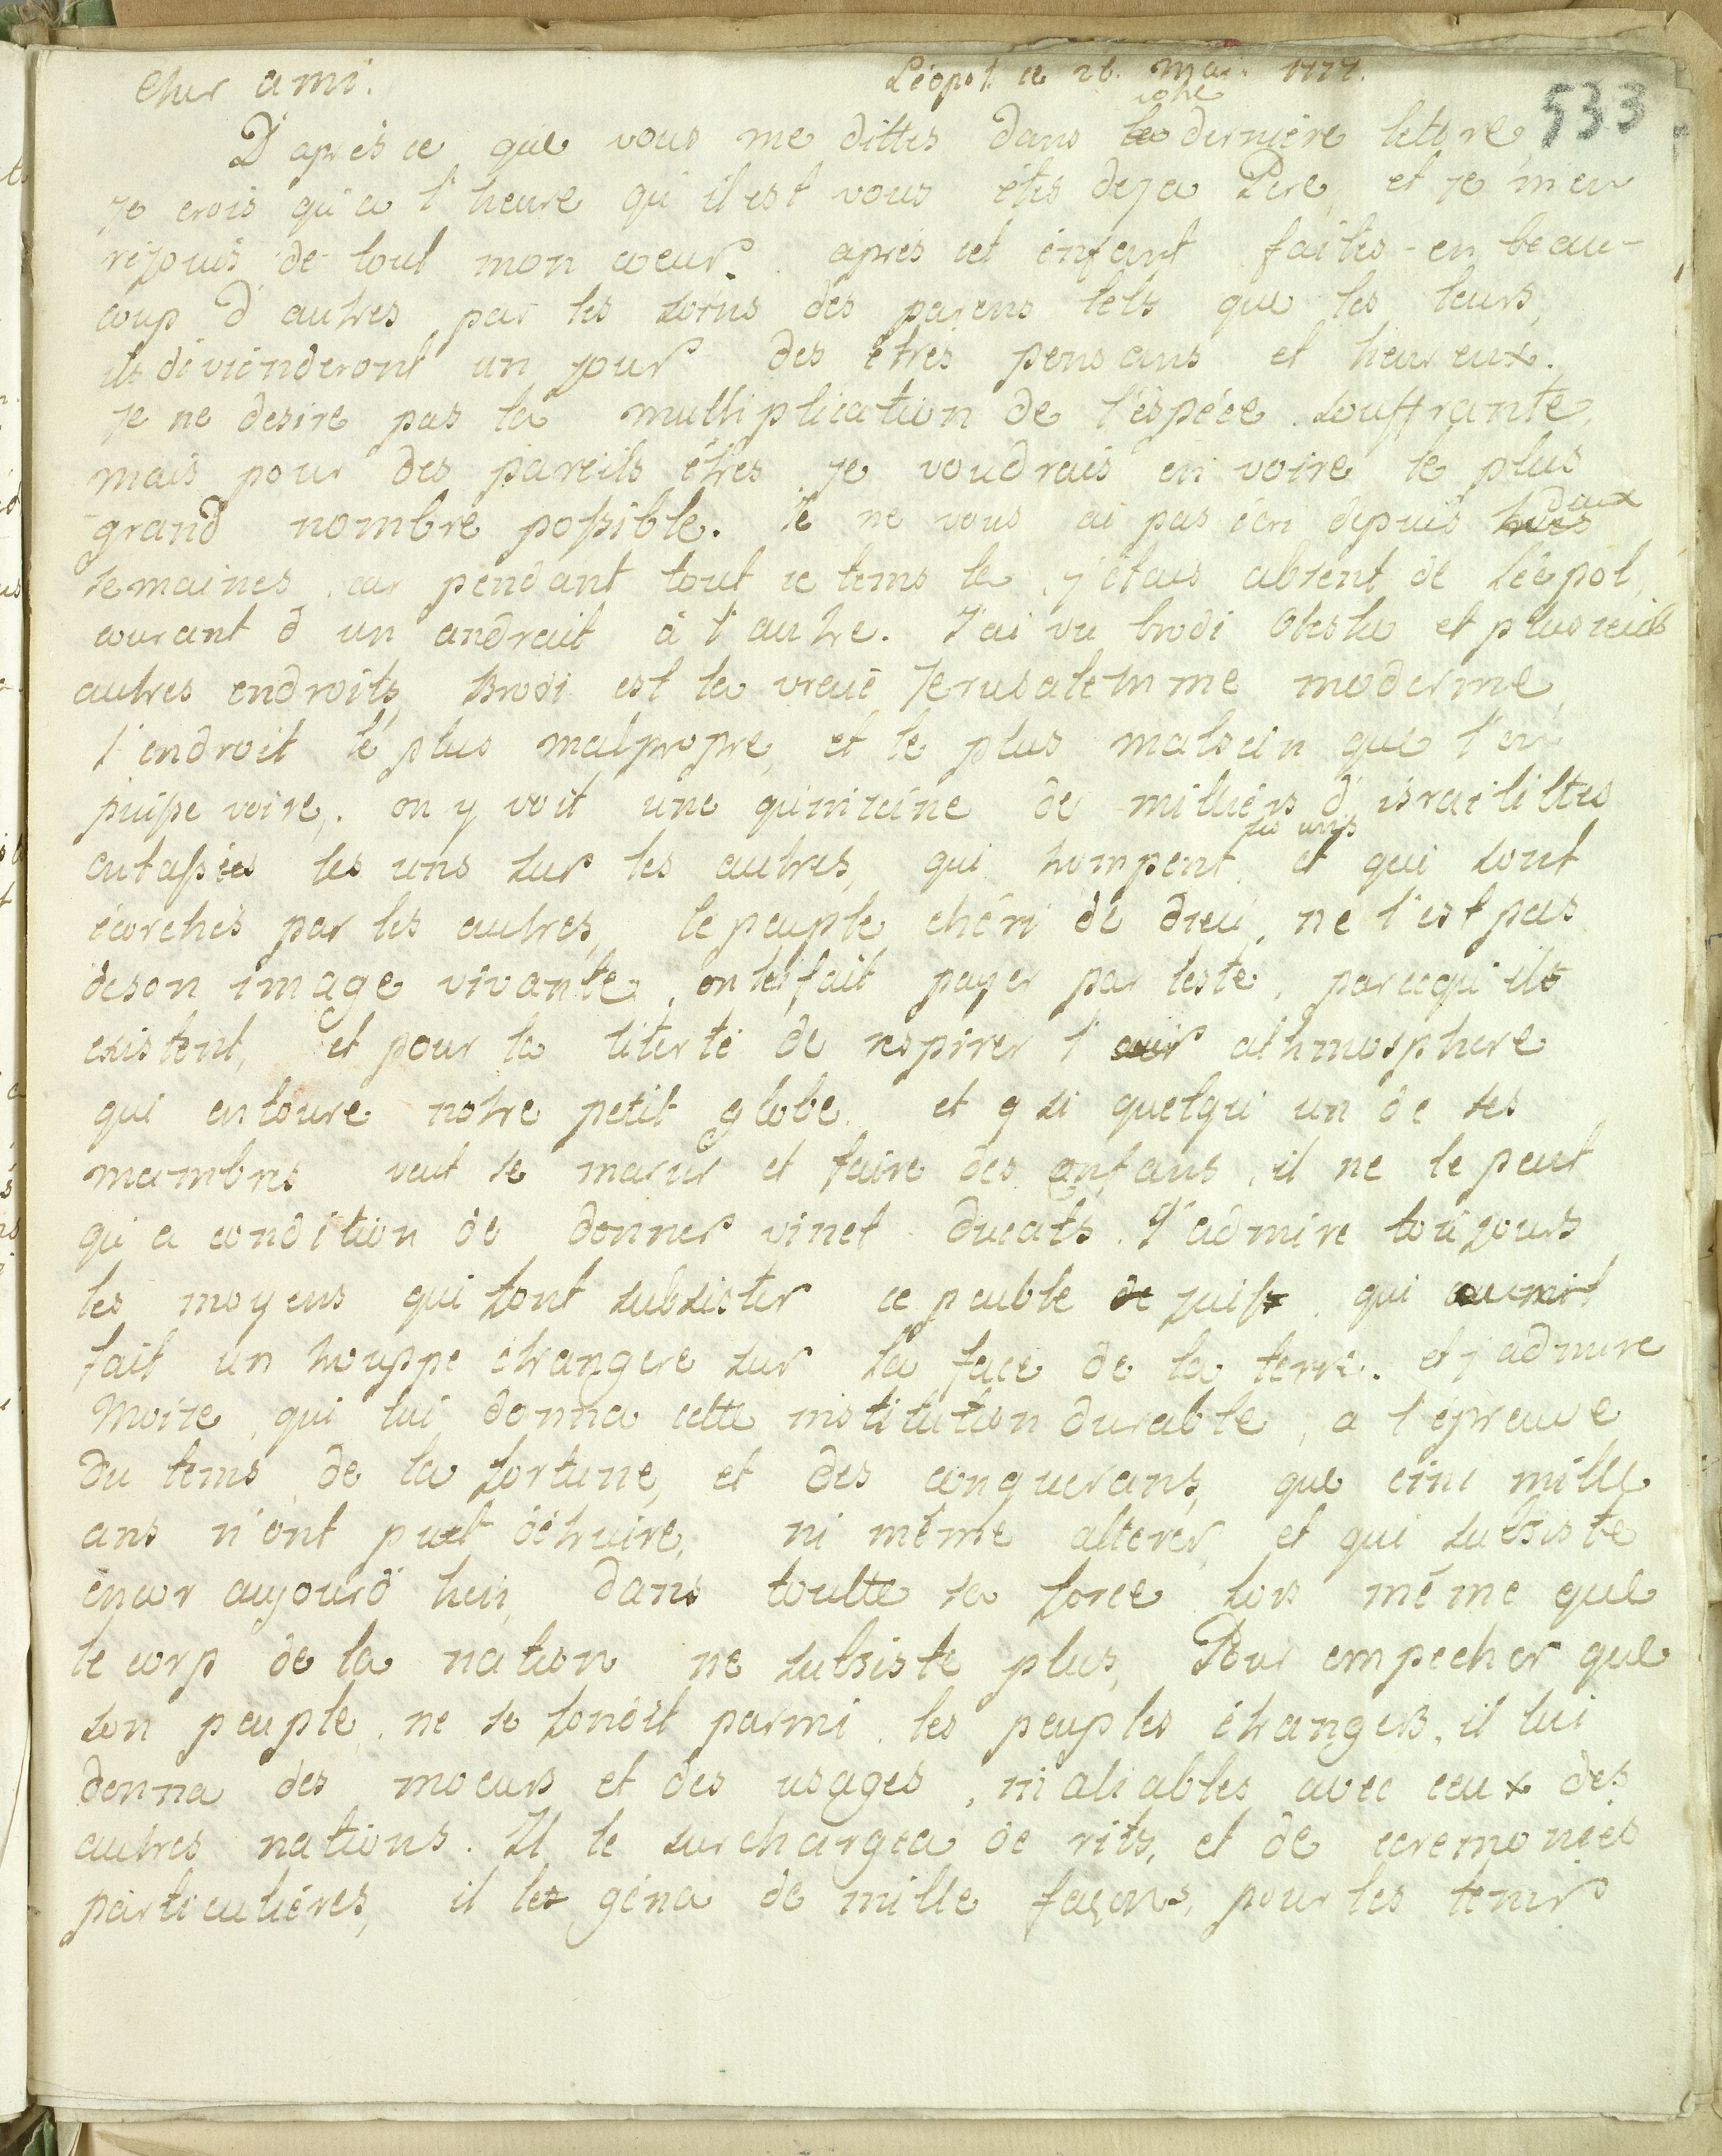 Cher ami. Léopol. ce 26. Mai. 1777.
533
D'aprés ce que vous me dittes dans votre derniére lettre,
je crois qu'a l'heure qu'il est vous étes deja Pere, et je m'en
réjouis de tout mon coeur. aprés cet énfant faites-en beau-
coup d'autres, par les soins des parens tels que les leurs,
ils diviénderont un jour des étres pensans et heureux.
je ne desire pas la multiplication de l'éspéce souffrante,
mais pour des pareils étres je voudrais en voire le plus
grand nombre possible. Je ne vous ai pas écri depuis deux
semaines, car pendant tout ce tems la j'étais absent de Léopol,
courant d'un andrait à l'autre. J'ai vu brodi Olesko et plusieurs
autres endroits, Brodi est la vraié Jerusalemme moderne,
l'endroit le plus malpropre, et le plus malsain que l'on
puisse voire, on y voit une quinzéine de milliérs d'israelittes
entassées les uns sur les autres, qui trompent les uns et qui sont
écorchés par les autres, le peuple chéri de dieu, ne l'est pas
de son image vivante, on les fait payer par teste, parcequ'ils
existent, et pour la liberté de respirer l'athmosphere
qui entoure notre petit globe. et si quelqu'un de ses
mambres veut se marier et faire des enfans, il ne le peut
qu'a condition de donner vinct ducats. J'admire toujours
les moyens qui font subsister ce peuble juif, qui
fait un trouppe étrangere sur la face de la terre. et j'admire
Moize, qui lui donna cette institution durable, a l'épreuve
du tems, de la fortune, et des conquerans, que cinc mille
ans n'ont put détruire, ni méme alterer, et qui subsiste
encor aujourd'hui, dans toutte sa force lors méme que
le corp de la nation ne subsiste plus, Pour empecher que
son peuple, ne se fondit parmi les peuples étrangers, il lui
donna des moeurs et des usages, inaliables avec ceux des
autres nations. Il le surchargea de rits, et de ceremonies
particuliéres, il les géna de mille façons, pour les tenir